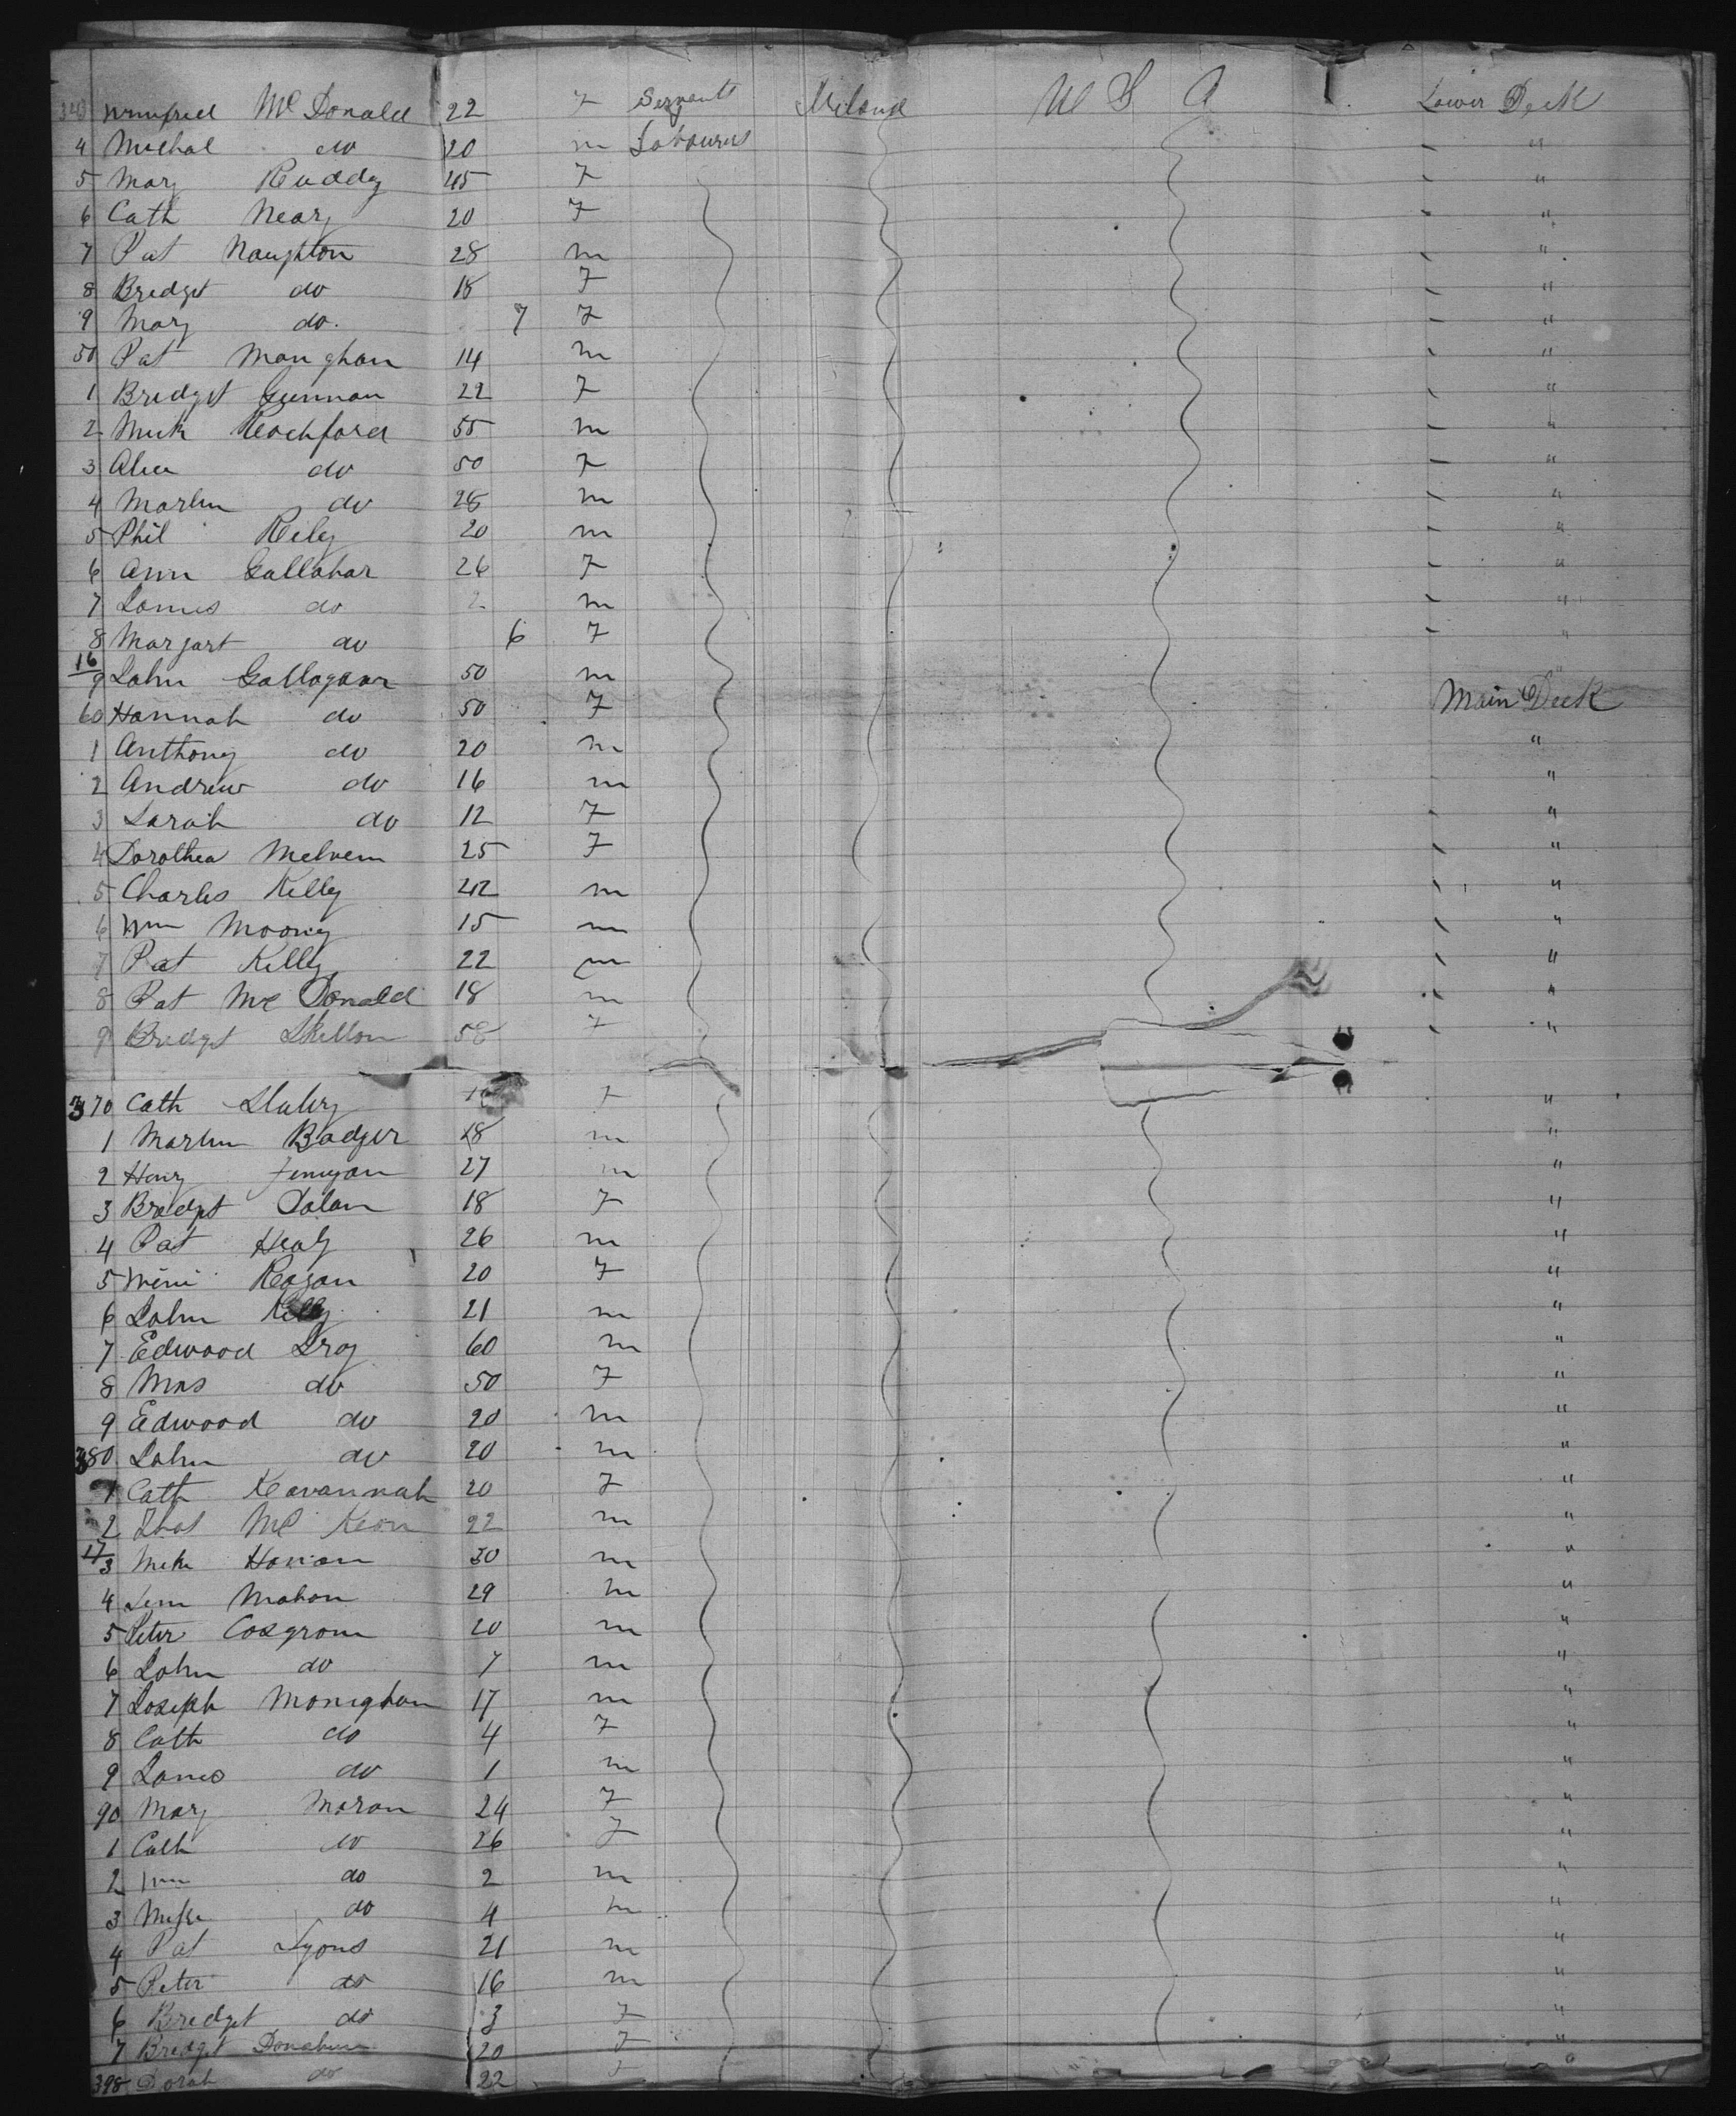 343 Winifred Mc Donald 22 F Servant Ireland U S A Lower Deck
4 Michal do 20 m Labourers "
5 Mary Ruddy 45 F "
6 Cath Neary 20 F "
7 Pat Naughton 28 m "
8 Bridget do 18 F "
9 Mary do. 7 F "
50 Pat Monghan 14 m "
1 Bridget Gunnan 22 F "
2 Mick Rochford 55 m "
3 Alice do 50 F "
4 Martin do 28 m "
5 Phil Reily 20 m "
6 Ann Gallahar 26 F "
7 James do 2 m "
8 Margart do 6 F "
16
9 John Gallagaar 50 m
60 Hannah do 50 F Main Deck
1 Anthony do 20 m "
2 Andrew do 16 m "
3 Sarah do 12 F "
4 Dorothea Melvem 25 F "
5 Charles Kelly 42 m "
6 Wm Moony 15 m "
7 Pat Kelly 22 m "
8 Pat Mc Donald 18 m "
9 Bridget Skellon 58 F "
370 Cath F "
1 Martin Badger 18 m "
2 Henry Finnigan 27 m "
3 Bridget Dolan 18 F "
4 Pat Healy 26 m "
5 Regan 20 F "
6 John Kelly 21 m "
7 Edwood 60 m "
8 Mrs do 50 F "
9 Edwood do 20 m "
380 John do 20 m "
1 Cath Kavannah 20 F "
2 Thos Mc Keon 22 m "
17
3 Mike Honan 30 m "
4 Mahon 29 m "
5 Peter Cosgrove 20 m "
6 John do 7 m "
7 Joseph Monighan 17 m "
8 Cath do 4 F "
9 James do 1 m "
90 Mary Moran 24 F "
1 Cath do 26 F "
2 Wm do 2 m "
3 Mike do 4 m "
4 Pat Lyons 21 m "
5 Peter do 16 m "
6 Bridget do 3 F "
7 Bridget Donahue 20 F "
398 Dorah do 22 F "